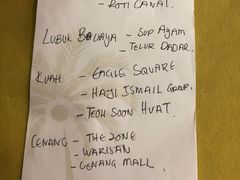 - ROTI CANAI.
LUBUK BUAYA - SUP AYAM
- TELUR DADAR.
KUAH - EAGLE SQUARE
- HAJI ISMAIL GROUP.
- TEOH SOON HUAT.
CENANG - THE ZONE
- WARISAN
- CENANG MALL.